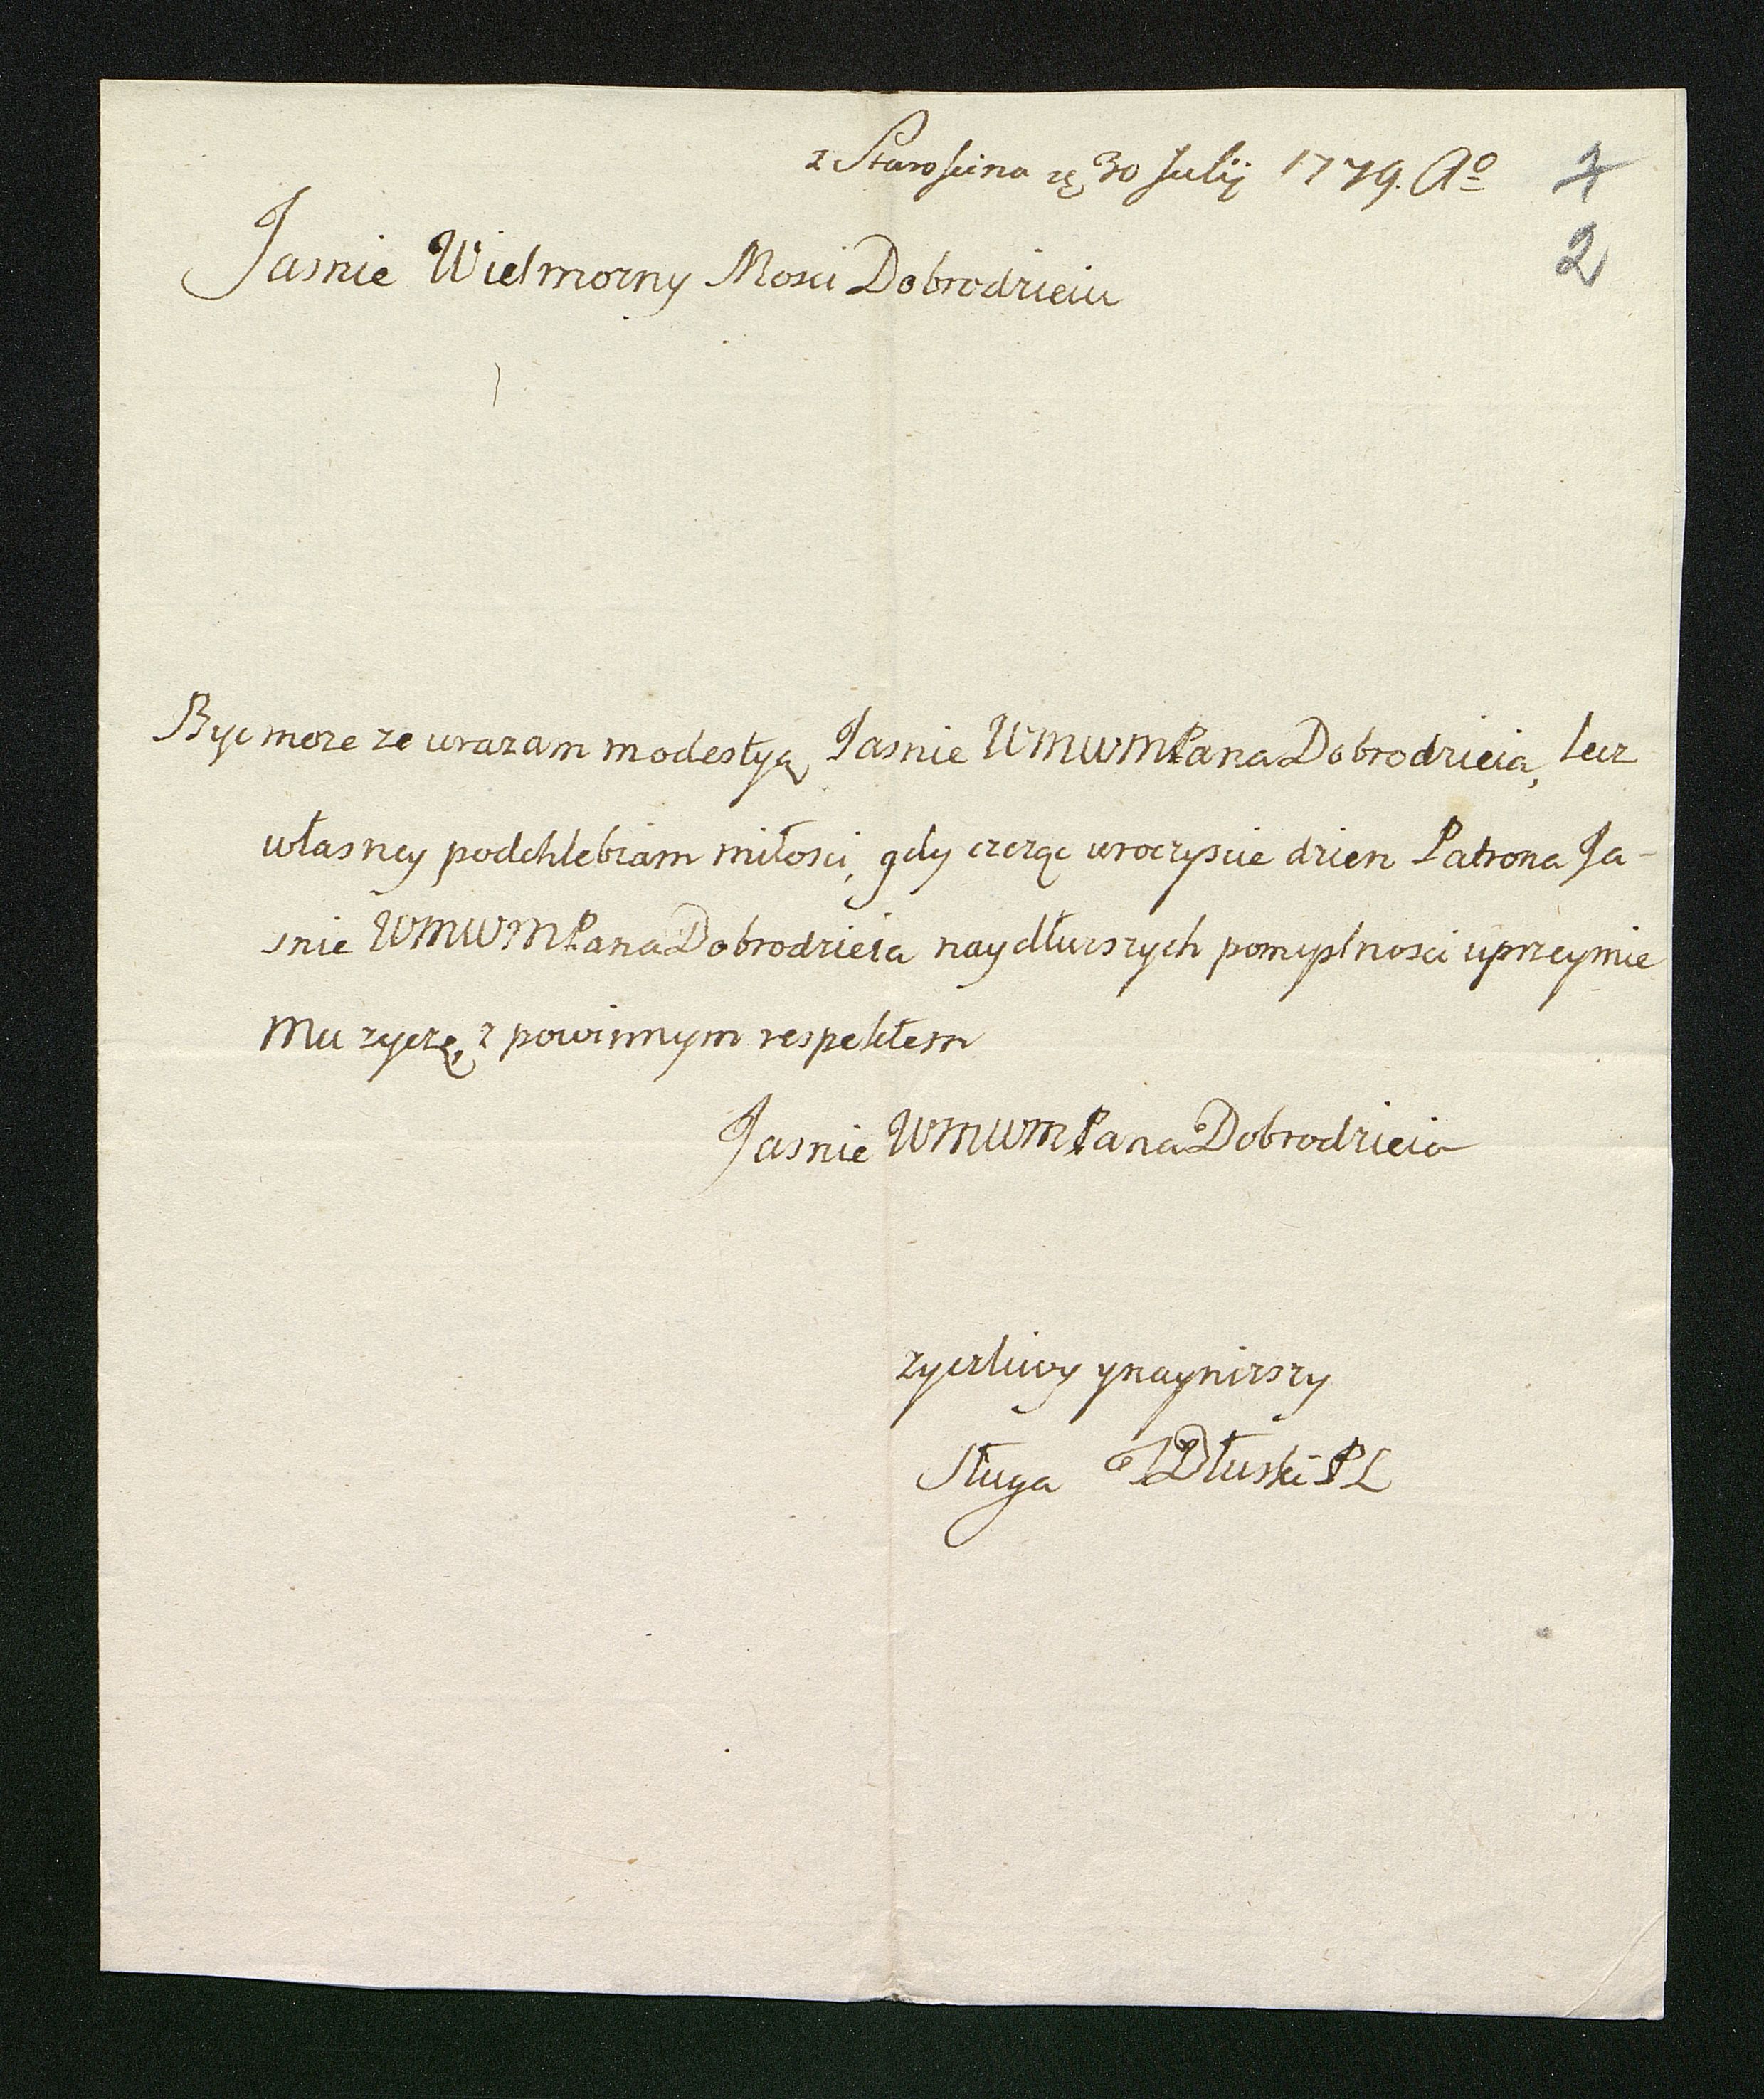 z Starościna 30 Julij 1779. Aº
2
Jasnie Wielmozny Mosci Dobrodzieiu
Byc moze ze urazam modestyą Jasnie WMWMPana Dobrodzieia, lecz
własney podchlebiam miłosci, gdy czcząc uroczyscie dzien Patrona Ja-
snie WMWMPana Dobrodzieia naydłuzszych pomyslnosci uprzeymie
Mu zyczę, z powinnym respektem
Jasnie WMWMPana Dobrodzieia
zyczliwy y naynizszy
Sługa Dłuski PL